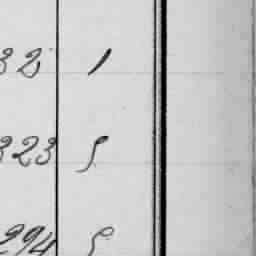 32 1
323 5
294 5